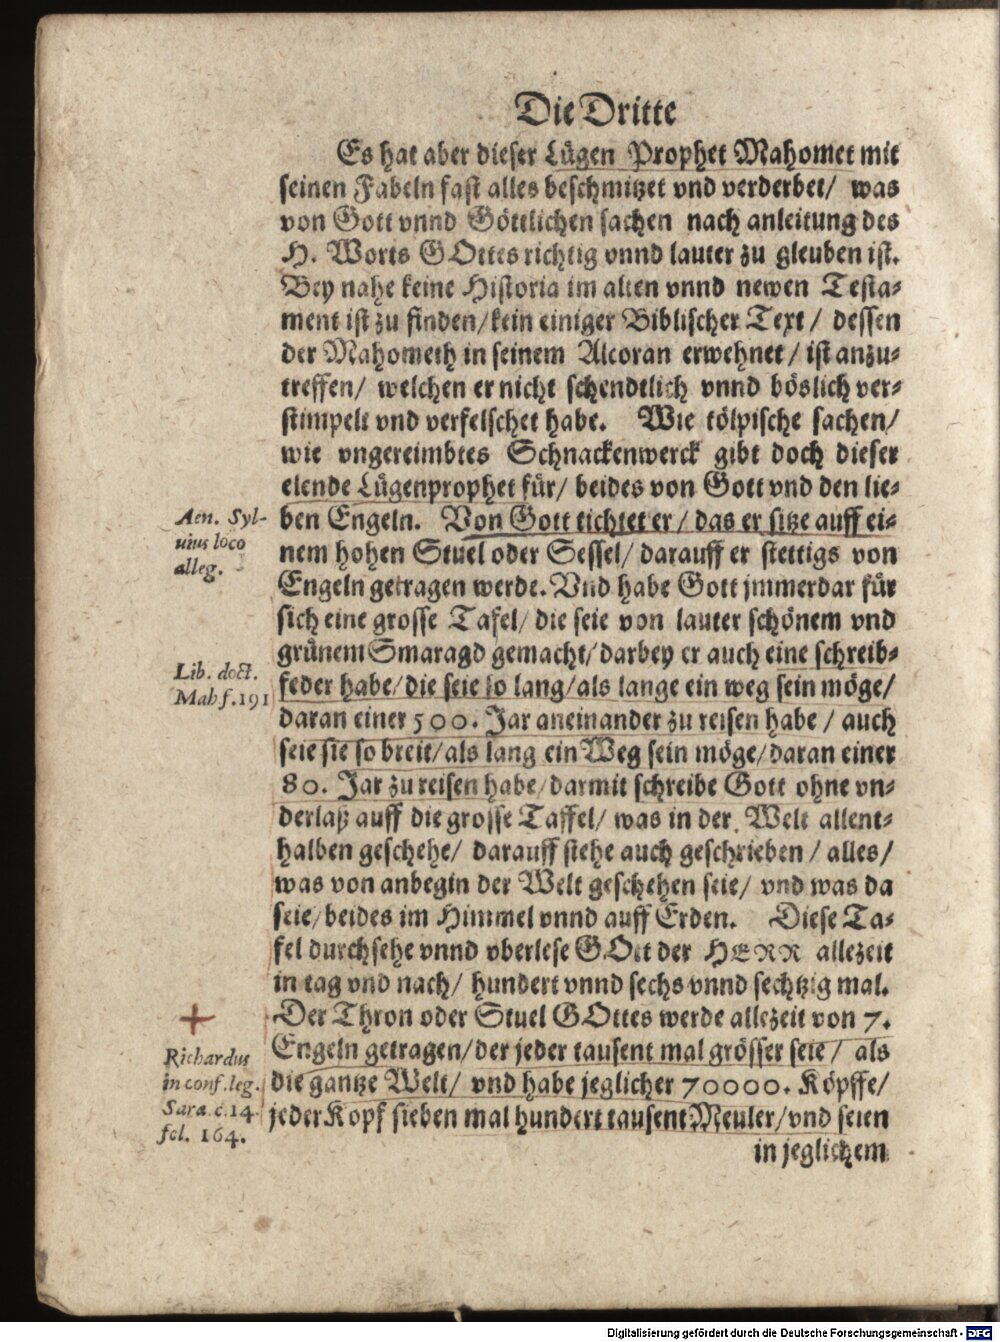 Die Dritte
Es hat aber dieser Lügen Prophet Mahomet mit
seinen Fabeln fast alles beschmitzet vnd verderbet/ was
von Gott vnnd Göttlichen sachen nach anleitung des
H. Worts GOttes richtig vnnd lauter zu gleuben ist.
Bey nahe keine Historia im alten vnnd newen Testa-
ment ist zu finden/ kein einiger Biblischer Text/ dessen
der Mahometh in seinem Alcoran erwehnet/ ist anzu-
treffen/ welchen er nicht schendtlich vnnd böslich ver-
stimpelt vnd verfelschet habe. Wie tölpische sachen/
wie vngereimbtes Schnackenwerck gibt doch dieser
elende Lügenprophet für/ beides von Gott vnd den lie-
ben Engeln. Von Gott tichtet er/ das er sitze auff ei-
nem hohen Stuel oder Sessel/ darauff er stettigs von
Engeln getragen werde. Vnd habe Gott jmmerdar für
sich eine grosse Tafel/ die seie von lauter schönem vnd
grünem Smaragd gemacht/ darbey er auch eine schreib-
feder habe/ die seie so lang/ als lange ein weg sein möge/
daran einer 500. Jar aneinander zu reisen habe/ auch
seie sie so breit/ als lang ein Weg sein möge/ daran einer
80. Jar zu reisen habe/ darmit schreibe Gott ohne vn-
derlaß auff die grosse Taffel/ was in der Welt allent-
halben geschehe/ darauff stehe auch geschrieben/ alles/
was von anbegin der Welt geschehen seie/ vnd was da
seie/ beides im Himmel vnnd auff Erden. Diese Ta-
fel durchsehe vnnd vberlese GOtt der HERR allezeit
in tag vnd nach/ hundert vnnd sechs vnnd sechtzig mal.
Der Thron oder Stuel GOttes werde allezeit von 7.
Engeln getragen/ der jeder tausent mal grösser seie/ als
die gantze Welt/ vnd habe jeglicher 70000. Köpffe/
jeder Kopf sieben mal hundert tausent Meuler/ vnd seien
in jeglichem
Aen. Syl-
uius loco
alleg.
Lib. doct.
Mah f. 191
+
Richardus
in conf. leg.
Sara c. 14
fol. 164.
Digitalisierung gefördert durch die Deutsche Forschungsgemeinschaft - DFG